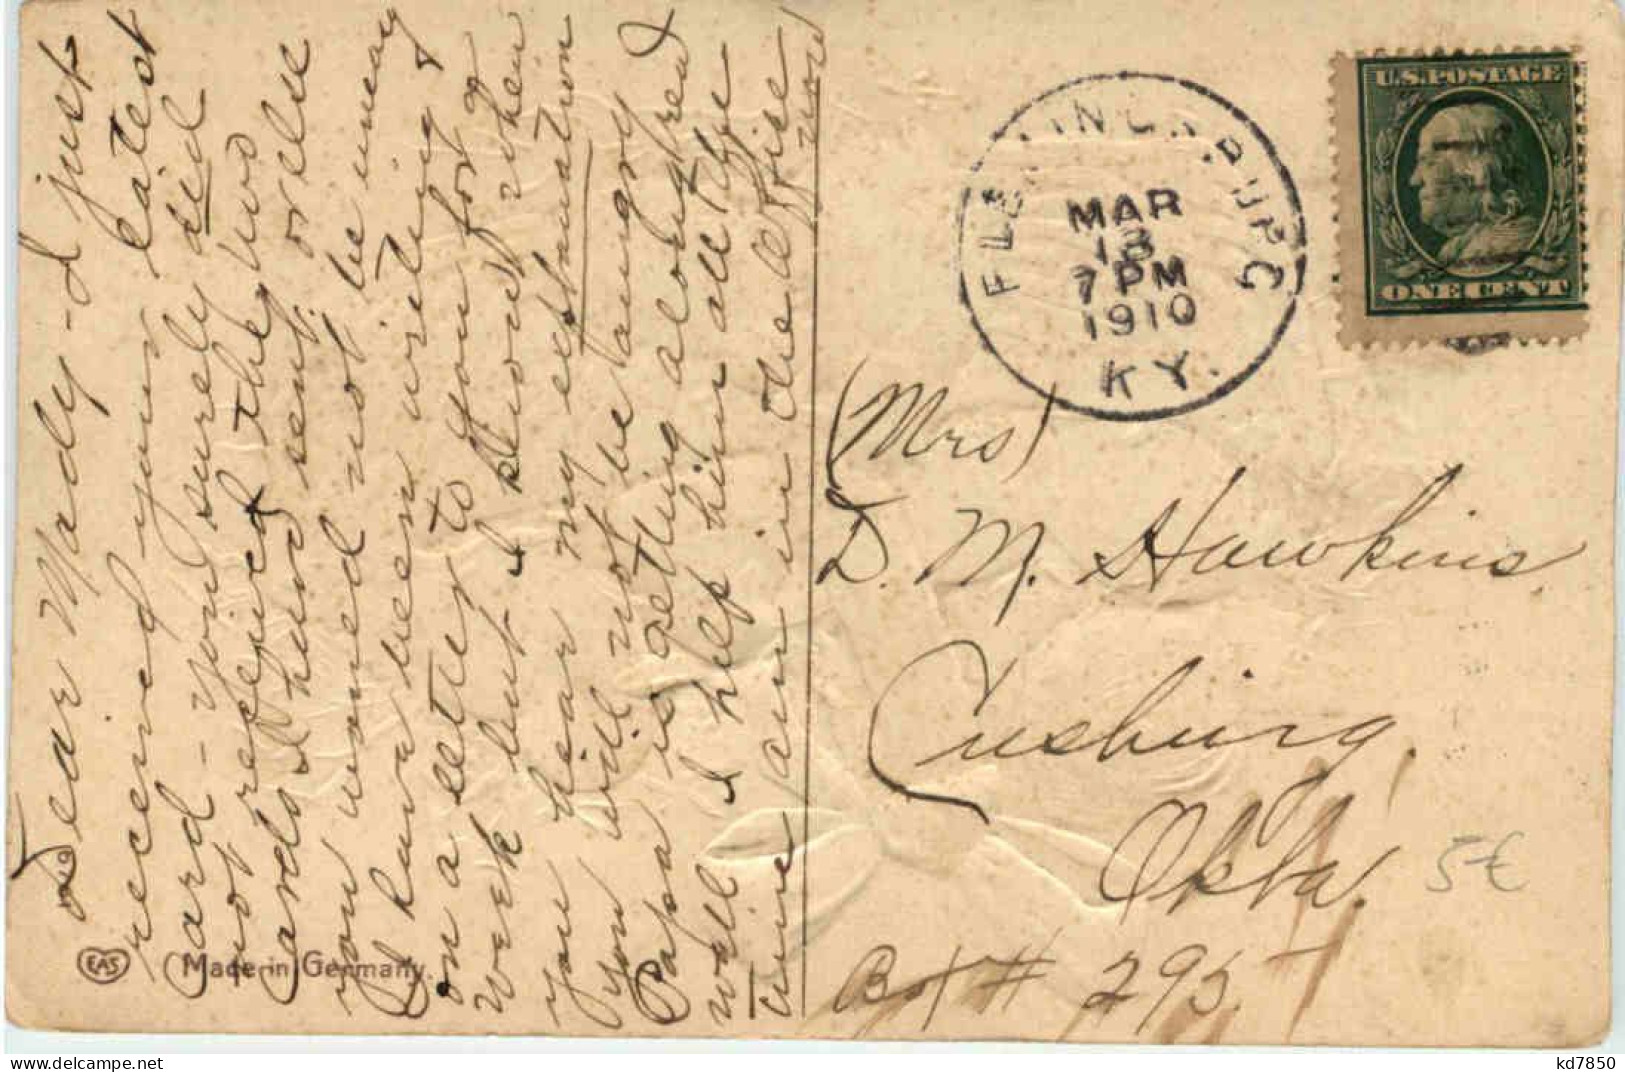 Dear Mady - I just
received your latest
card - you surely did
not received the two
cards I hurd sent. or else
you wowed not be uneasy
I have been writing
on a letter to you for a
week but I dont when
you hear my explination
you will not be hungry
Papa is getting along real
well I help him all the
time am in the office
now
FLEMINGSBURG
MAR
18
7 PM
1910
KY.
U.S. POSTAGE
ONE CENT
(Mrs)
D. M. Hawkins
Cushing.
Okla.
Box # 295
5€
EAS Made in Germany.
kd7850